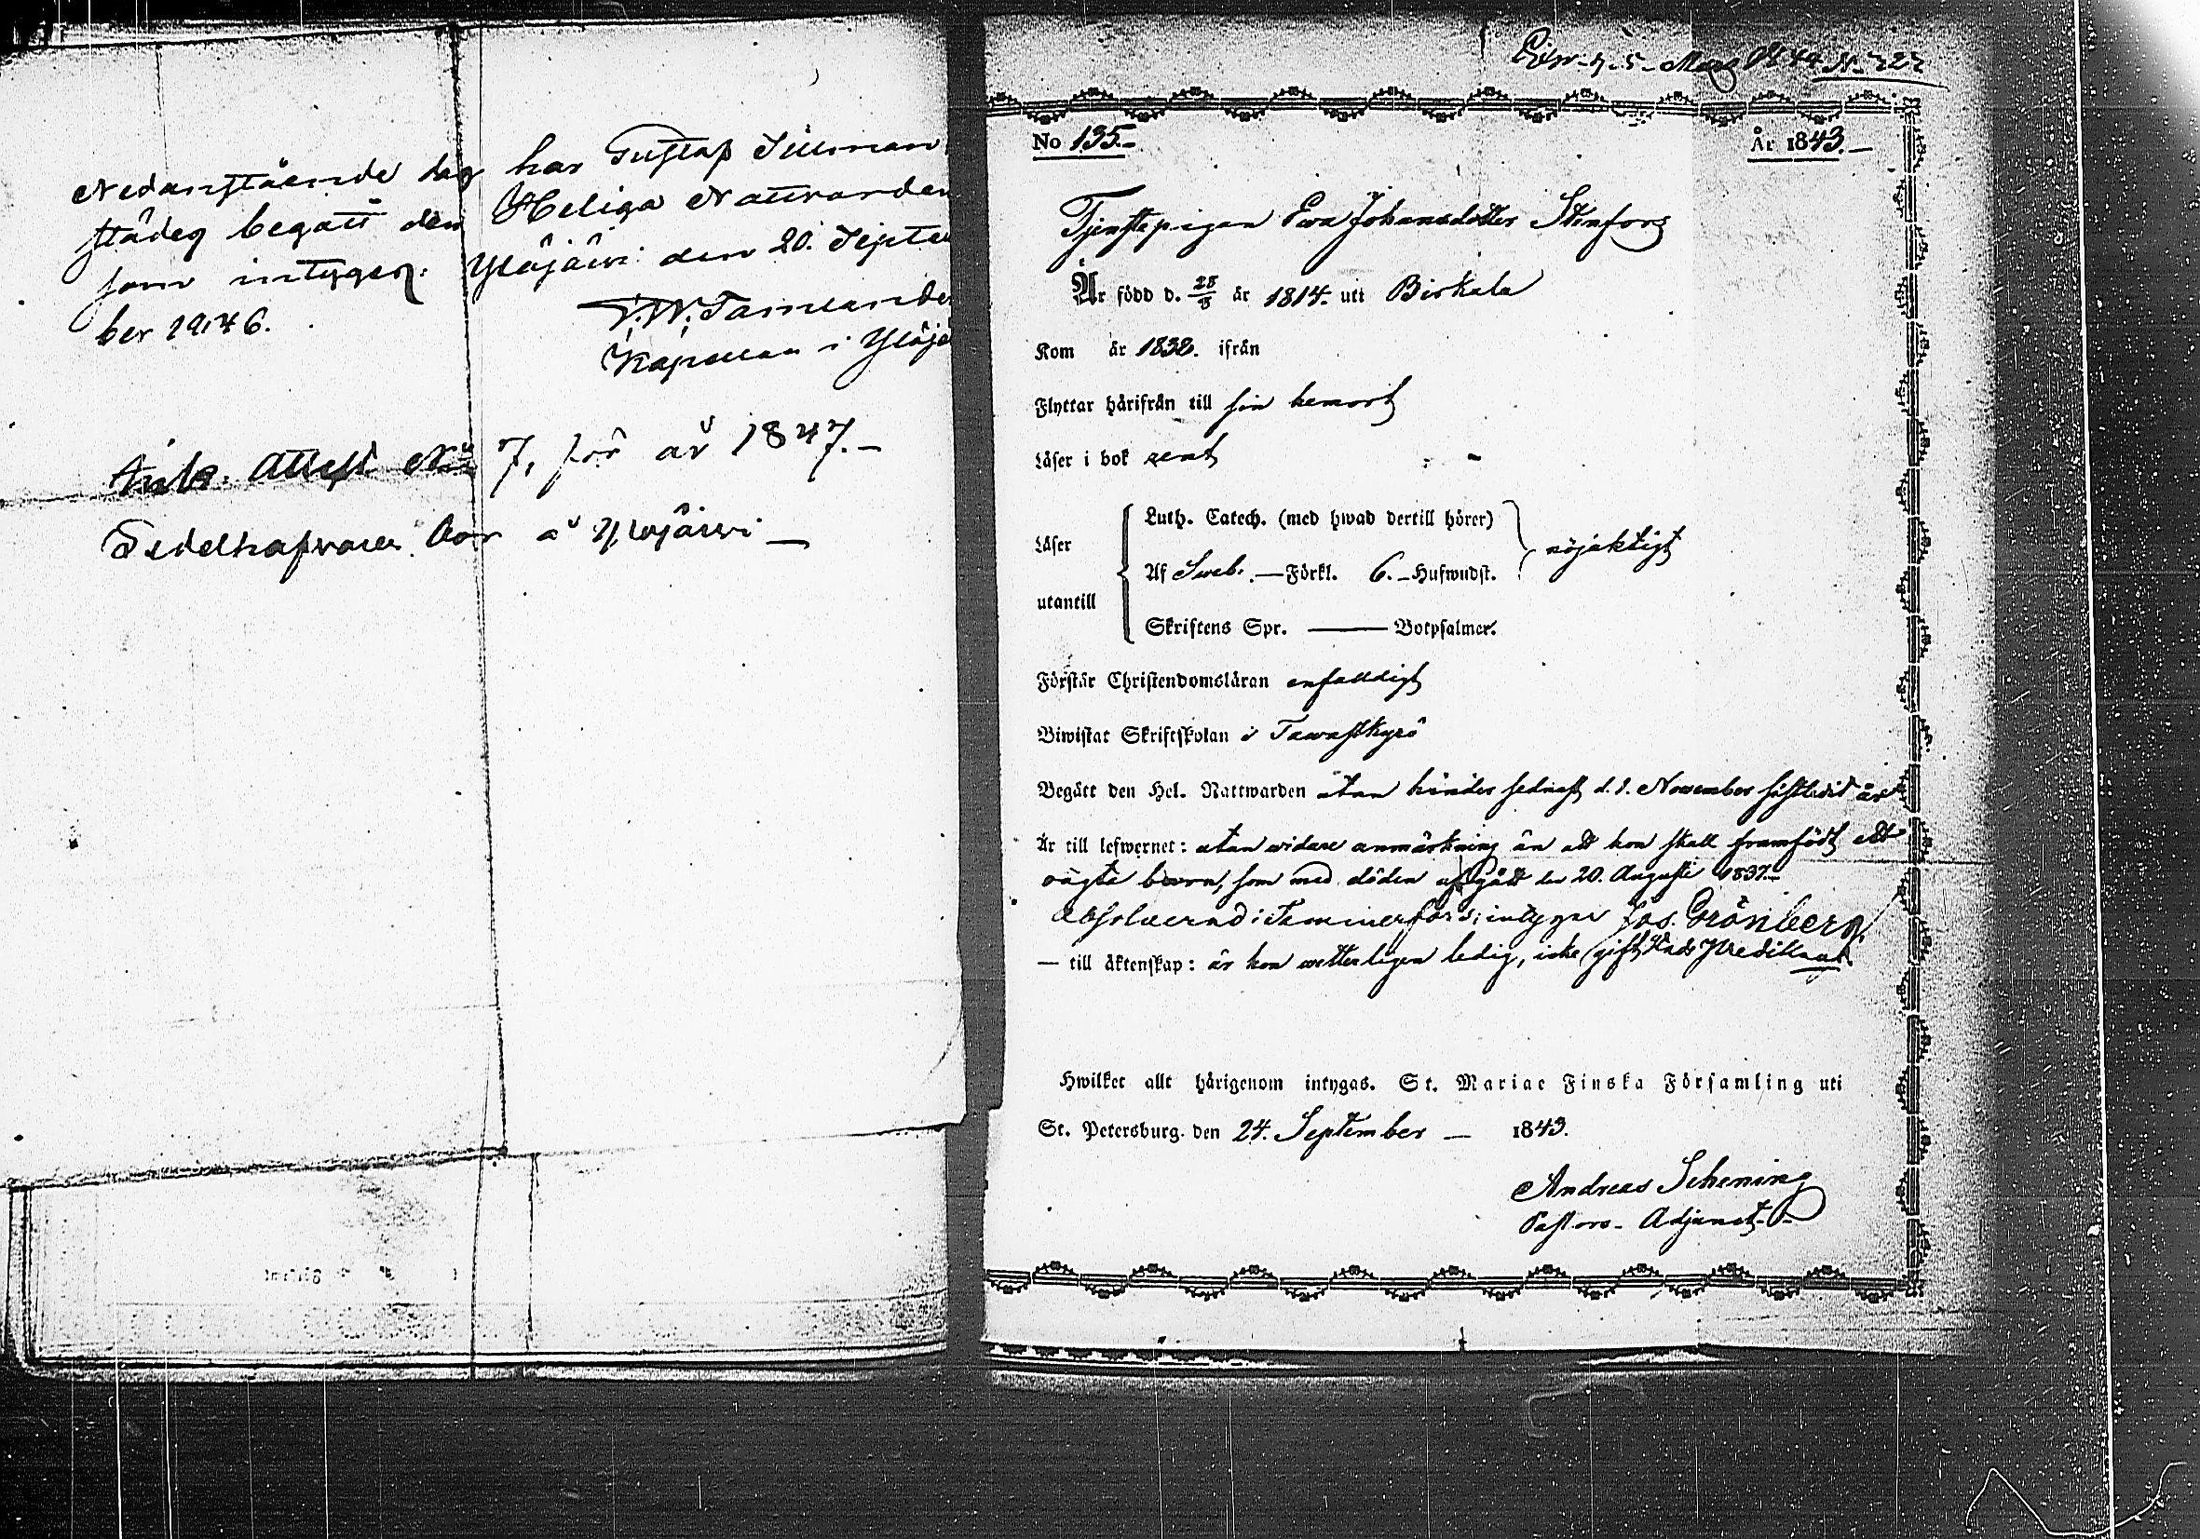 Nedanstående dag har Gustaf Sillman
städes begått den Heliga Nattvarden
som intygar. Ylöjärvi den 20. Septem
ber 1846.
Kapellan i Ylöjä
Attest No 7, för år 1847.-
Sedelhafvaren bor å Ylöjärvi -
1844 N. 222
No 135.-
År 1843.-
Tjenstepigan Ewa Johansdotter Stenfors
Är född d. 28/8 år 1814. uti Birkala
Kom år 1838. ifrån
Flyttar härifrån till sin hemort
Läser i bok rent
Läser
utantill
Luth. Catech. (med hwad dertill hörer)
Af Sweb. — Förkl. 6. - Hufwudst.
nöjaktigt
Skriftens Spr. — Botpsalmer.
Förstår Christendomsläran enfaldigt
Biwistat Skriftskolan i Tavastkyrö
Begått den Hel. Nattwarden utan hinder sednast d. 1. November sistledit år
Är till lefwernet: utan widare anmärkning än att hon skall framfödt ett
oägta barn, som med döden afgått den 20. Augusti 1837.-
Absolverad i Tammerfors; intygar Jos. Grönberg
— till äktenskap: är hon wetterligen ledig, icke gift
Hwilket allt härigenom intygas. St. Mariae Finska Församling uti
St. Petersburg. den 24. September — 1843.
Andreas Schening
Pastors-Adjunct.-